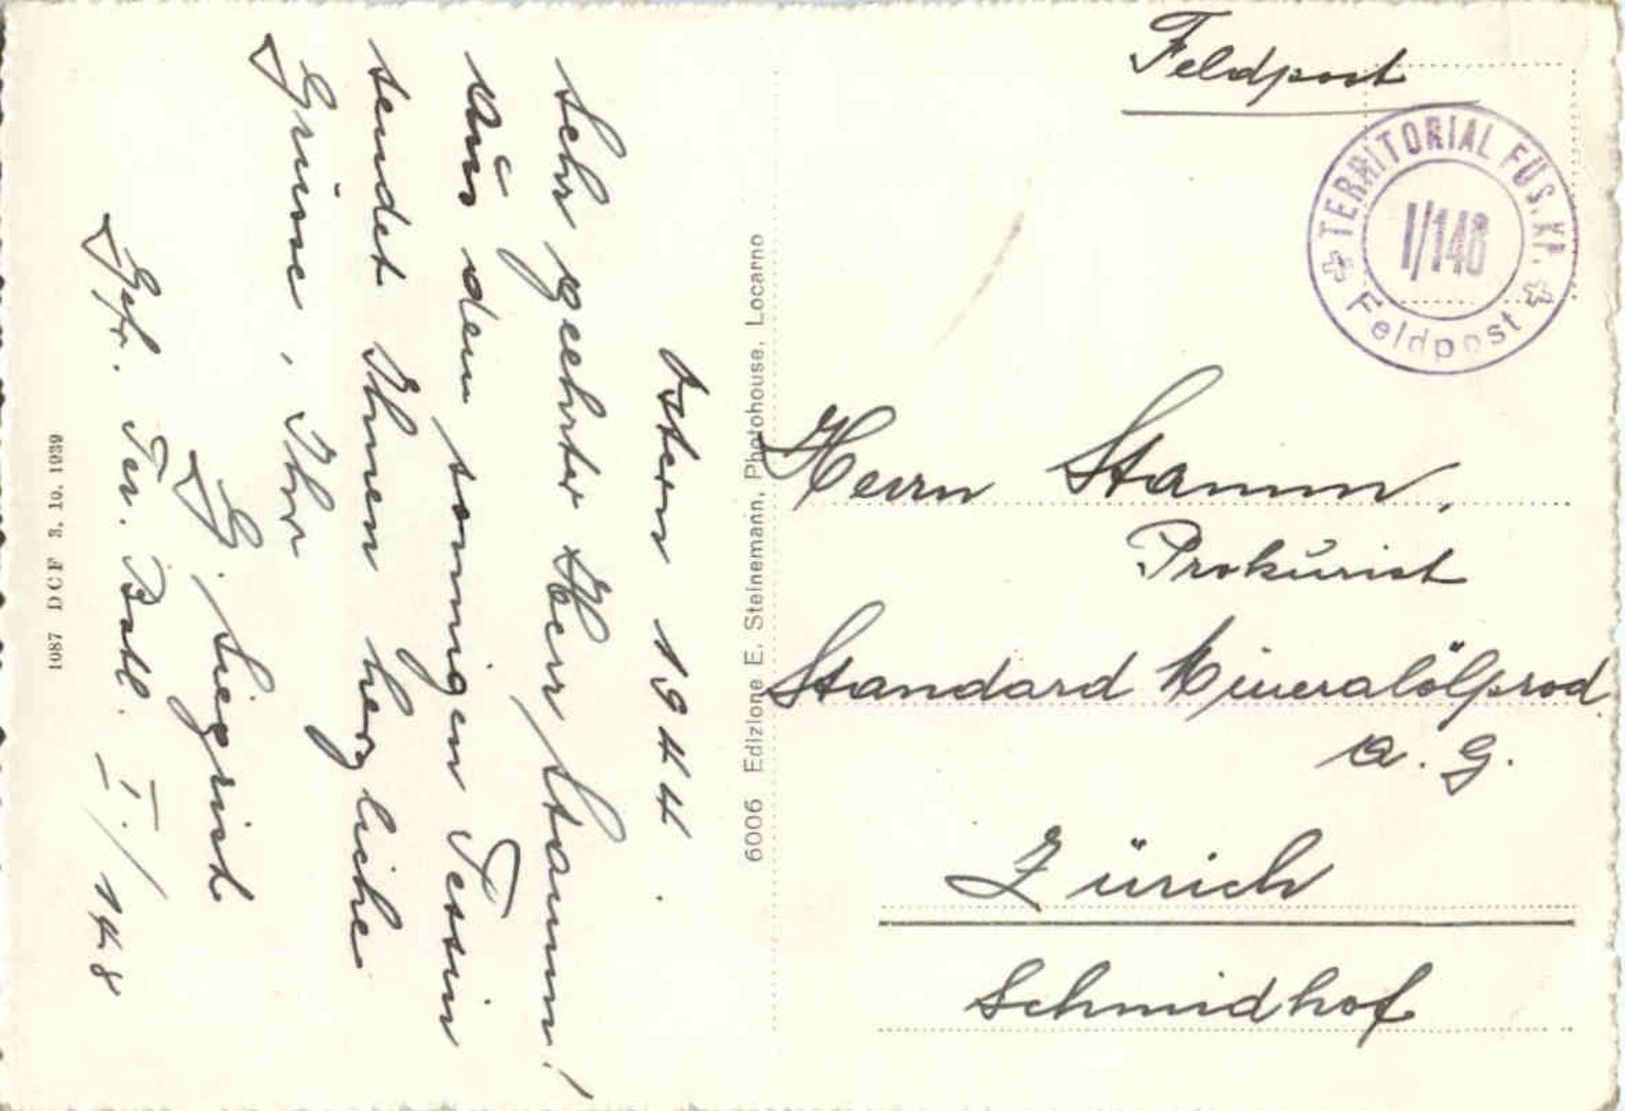 Ostern 1944.
Sehr geehrter Herr Stamm!
Aus dem sonnigen Tessin
sendet Ihnen herzliche
Grüsse, Ihr
G. Siegrist
Gefr. Ter. Batl. I./148
1087 DCF 3. 10. 1939
6006 Edizione E. Steinemann, Photohouse, Locarno
Feldpost
TERRITORIAL FÜS. KP.
I/148
Feldpost
Herrn Stamm,
Prokurist
Standard Mineralölprod.
A. G.
Zürich
Schmidhof